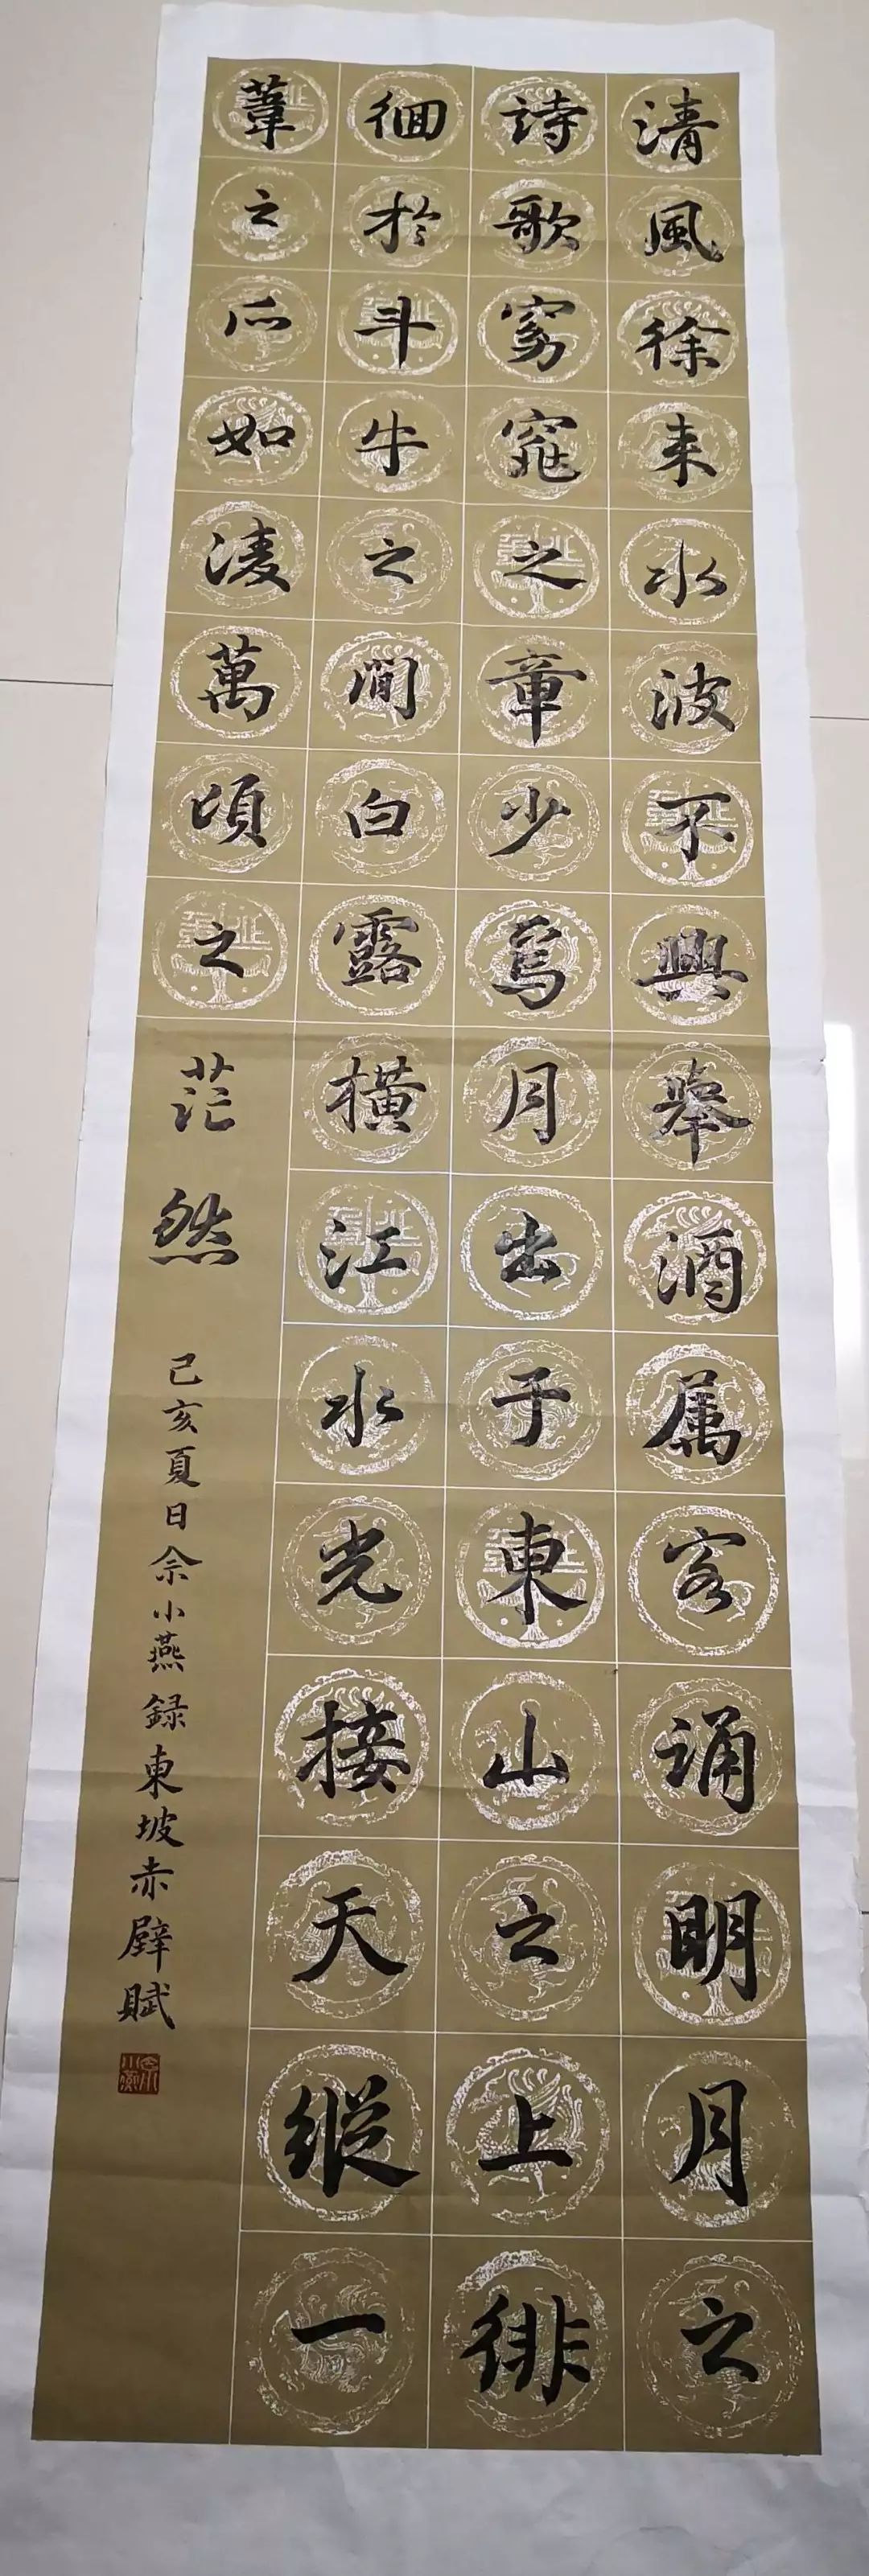 清風徐来水波不興舉酒属客诵明月之
詩歌窈窕之章少焉月出于東山之上徘
徊於斗牛之間白露橫江水光接天縱一
葦之所如凌萬頃之茫然
己亥夏日佘小燕録東坡赤壁賦